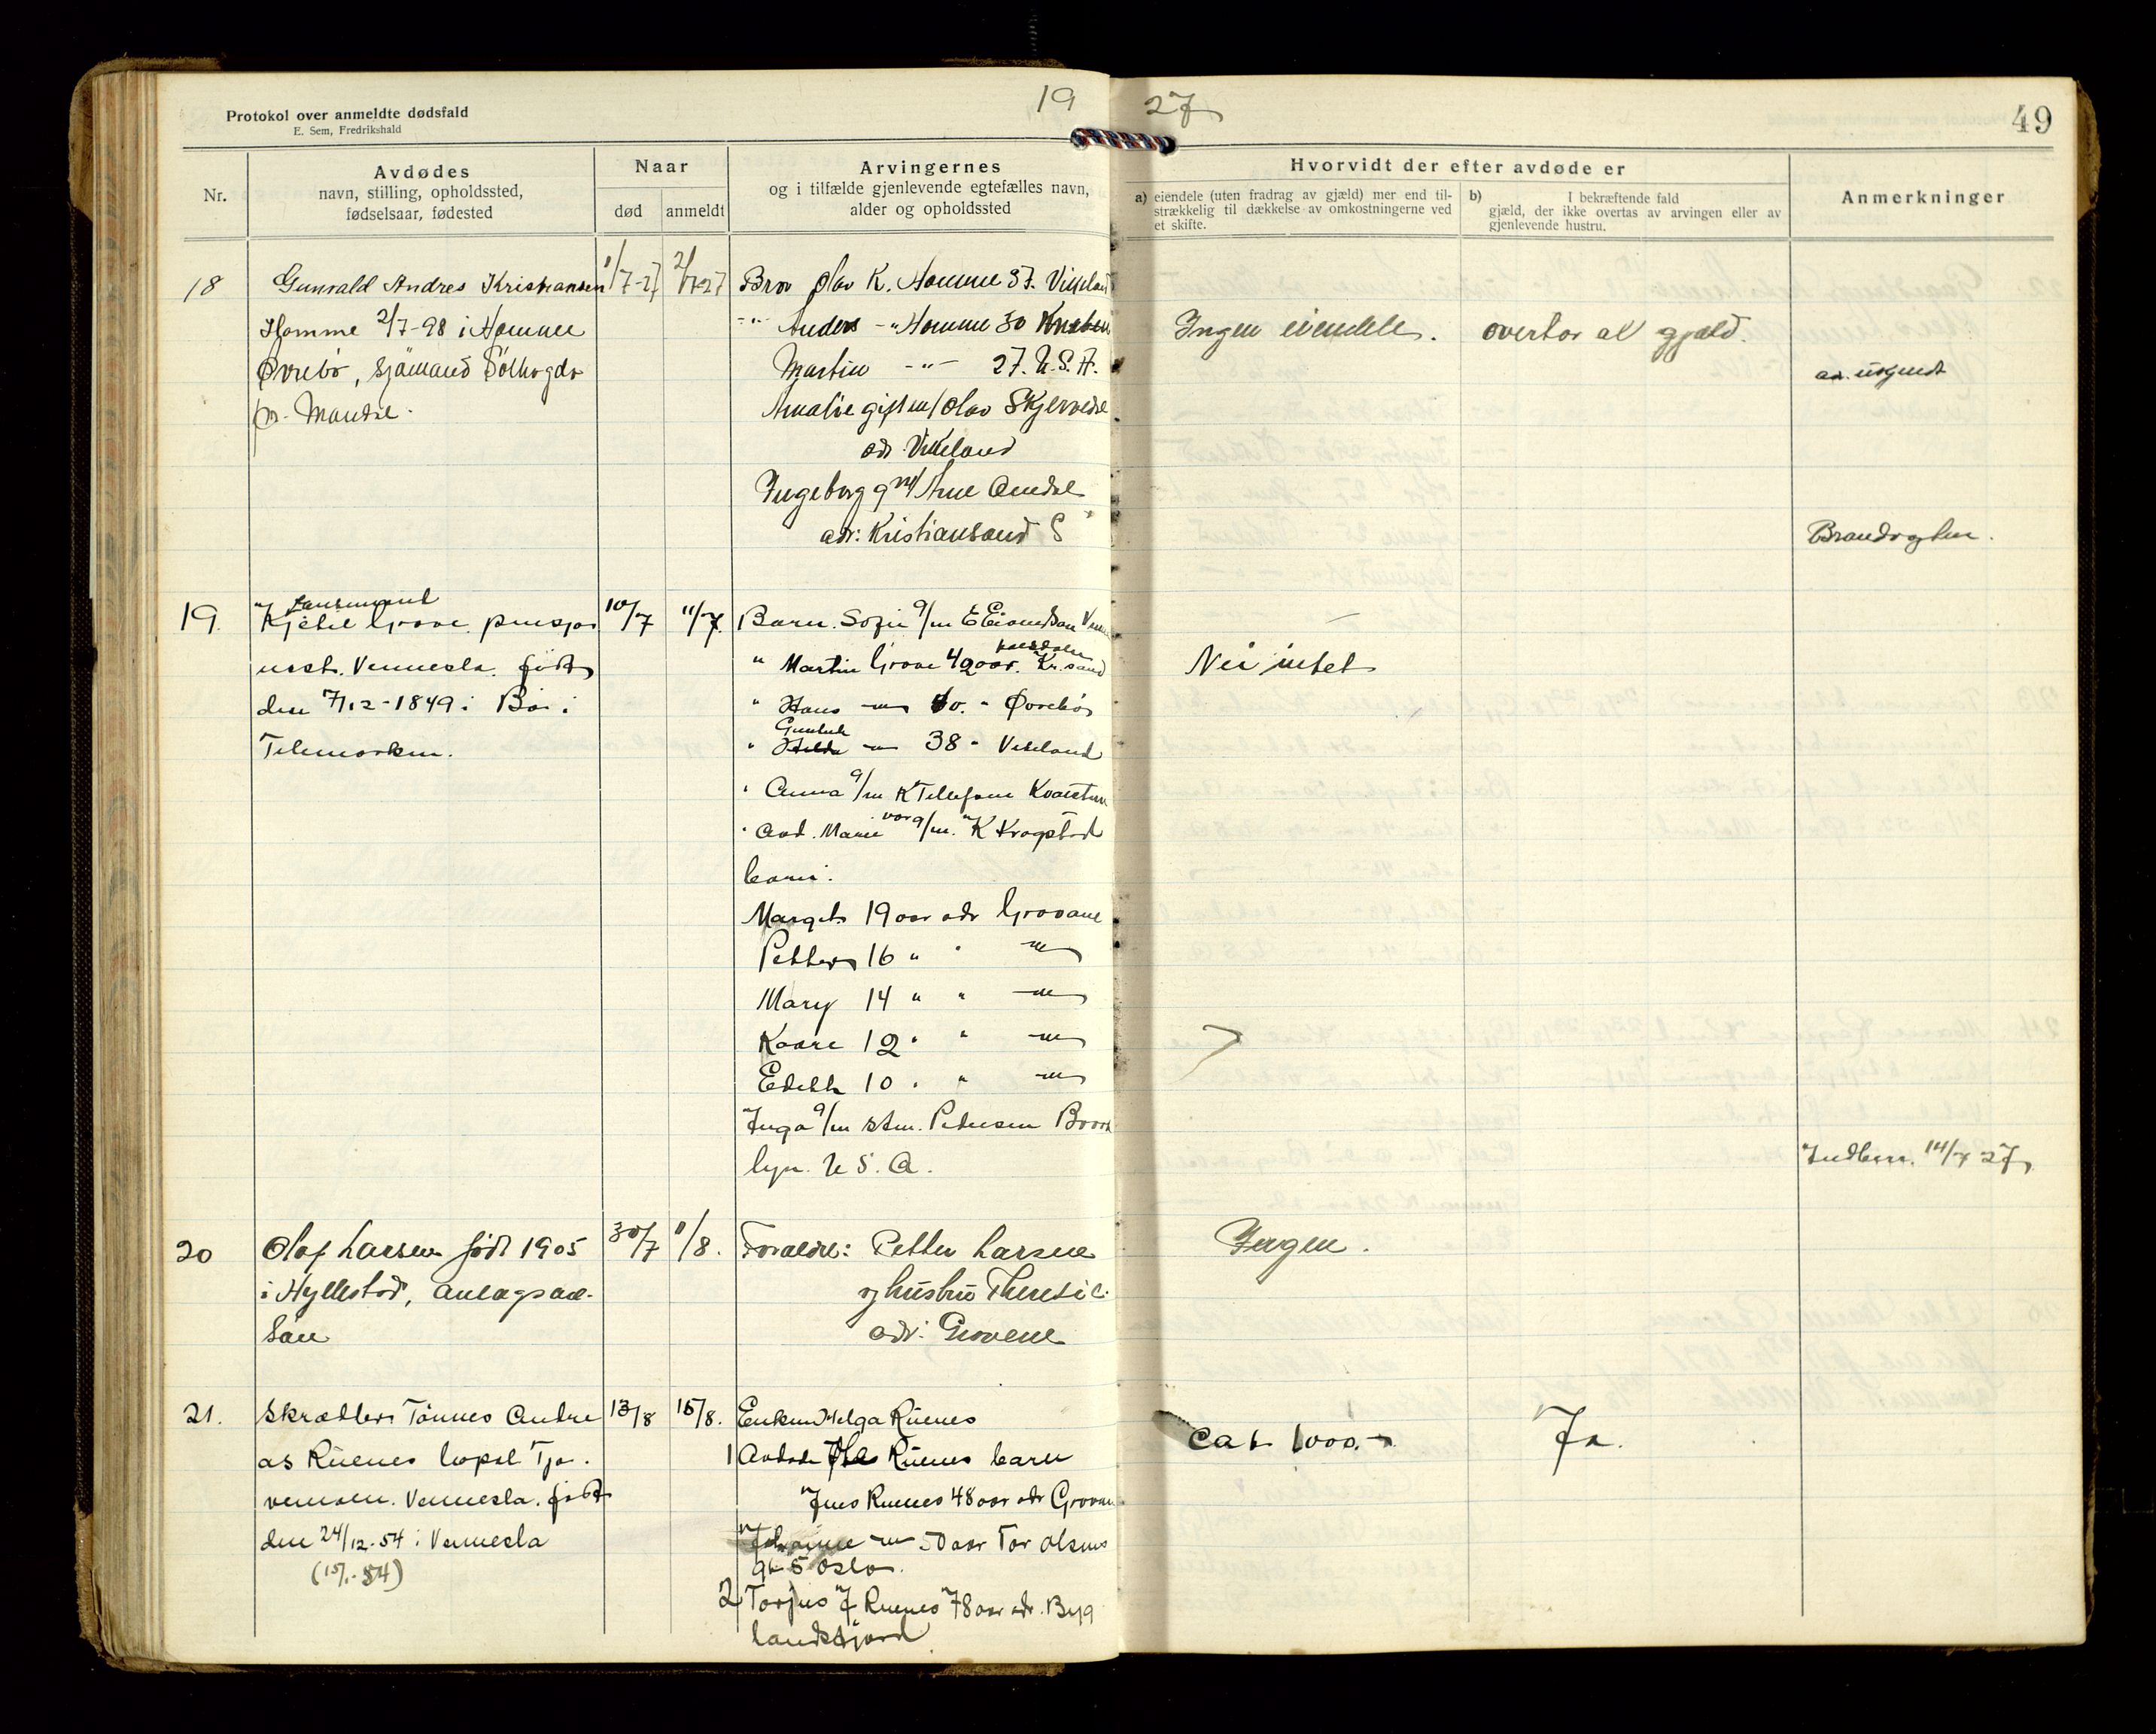 Protokol over anmeldte dødsfald
E. Sem, Fredrikshald
19 27
49
Nr.
Avdødes
navn, stilling, opholdssted,
fødselsaar, fødested
Naar
død
anmeldt
Arvingernes
og i tilfælde gjenlevende egtefælles navn,
alder og opholdssted
Hvorvidt der efter avdøde er
a) eiendele (uten fradrag av gjæld) mer end til-
strækkelig til dækkelse av omkostningerne ved
et skifte.
b) I bekræftende fald
gjæld, der ikke overtas av arvingen eller av
gjenlevende hustru.
Anmerkninger
18
Gunvald Andres Kristiansen
Homme 2/7-98 i Homme
Øvrebø, sjømand
p.r. Mandal.
1/7-27
2/7-27
Bror Olav K. Homme 37. Vikeland
-"- Anders -"- Homme 30
Martin -"- 27. U.S.A.
Amalie gift m/ Olav Skjervedal
adr. Vikeland
Ingeborg g m/ Arne Omdal
adr: Kristiansand S
Ingen eiendele.
overtar al gjæld.
19.
Kjetil Grove. pensjo
nist. Vennesla. født
den 7/12-1849 i Bø i
Telemarken.
10/7
11/7.
Barn. Sofie g/m E Eivindson
" Martin Grove 42 aar. Kr.sand
" Hans -"- 40. - Øvrebø
" Gunhild -"- 38 - Vikeland
" Anna g/m K Tellefsen
" Avd. Marie var g/m. K Krogstad
barn:
Margit 19 aar adr Grovane
Petter 16 " " -"-
Mary 14 " " -"-
Kaare 12 " " -"-
Edith 10 " " -"-
Inga g/m Petersen Broo
lyn. U S. A.
Nei intet
Indber. 14/7 27
20
Olaf Larsen født 1905
i Hyllestad, anlægsar-
30/7
1/8.
Forældre: Petter Larsen
og hustru Theresie
adr: Grovene
Ingen.
21.
Skrædder Tønnes Andre
as Ruenes
Vennesla. født
den 24/12-54 i Vennesla
13/8
15/8.
Enken Helga Ruenes
1 Avdøde Ruenes barn
Jens Ruenes 48 aar adr Grovan
Johanne -"- 50 aar Tor Olsens
gt 5 Oslo.
2 Torjus J Ruenes 78 aar adr. Byg
landsfjord
ca kr 1000.-
Ja.